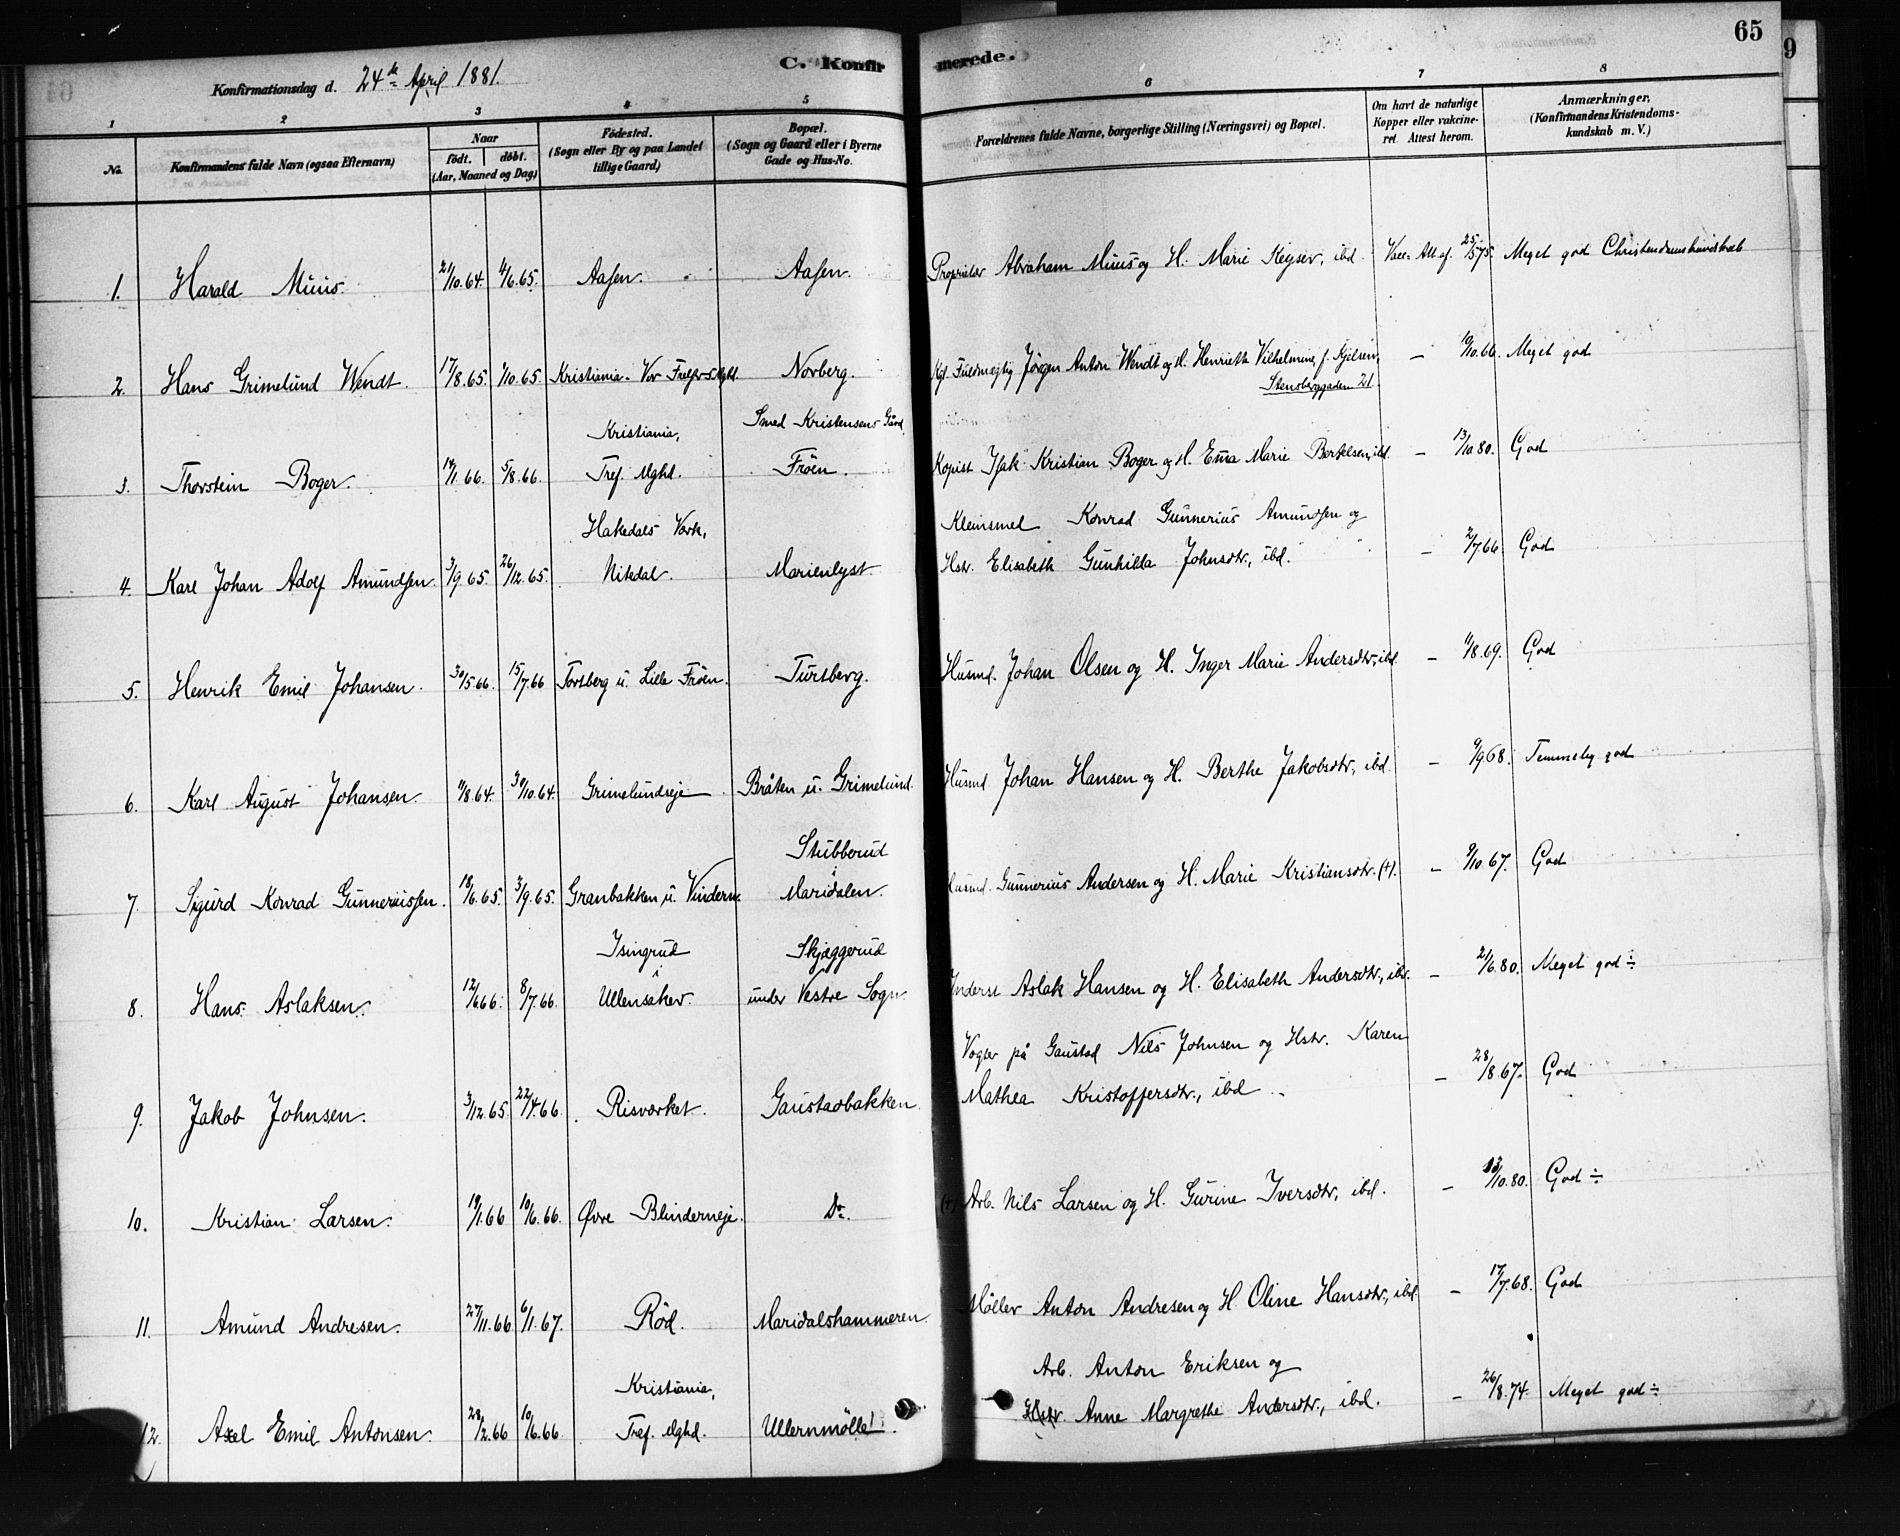 65
C. Konfirmerede.
9
Konfirmationsdag d. 24de April 1881.
1
2
3
4
5
6
7
8
No.
Konfirmandens fulde Navn (ogsaa Efternavn)
Naar
født. døbt.
(Aar, Maaned og Dag)
Fødested.
(Sogn eller By og paa Landet
tillige Gaard)
Bopæl.
(Sogn og Gaard eller i Byerne
Gade og Hus-No.
Forældrenes fulde Navne, borgerlige Stilling (Næringsvei) og Bopæl.
Om havt de naturlige
Kopper eller vakcine-
ret. Attest herom.
Anmærkninger,
(Konfirmandens Kristendoms-
kundskab m. V.)
1. Harald Muus. 21/10.64. 4/6.65. Aasen. Aasen. Proprietær Abraham Muus og H. Marie Keyser, ibd. Vacc. Att. af 25/5.75. Meget god Christendomskundskab
2. Hans Grimelund Wendt. 17/8.65. 1/10.65. Kristiania. Vor Frelsers Mghd. Norberg. Kgl. Fuldmægtig Jørgen Anton Wendt og H. Henriette Vilhelmine, f. Kjelsen,
Stensberggaden 21. — 10/10.66. Meget god
3. Thorstein Boger. 14/1.66. 5/8.66. Kristiania,
Tref. Mghd. Smed Kristensens Gård,
Frøen. Kopist Isak Kristian Boger og H. Ema Marie Berkelsen, ibd. — 13/10.80. God
4. Karl Johan Adolf Amundsen 3/9.65. 26/12.65. Hakedals Værk,
Nitedal. Marienlyst. Kleinsmed Konrad Gunnerius Amundsen og
Hstr. Elisabeth Gunhilda Johnsdtr., ibd. — 2/7.66. God
5. Henrik Emil Johansen. 30/5.66. 15/7.66 Tortberg u. Lille Frøen. Turtberg. Husmd. Johan Olsen og H. Inger Marie Andersdtr., ibd. — 11/8.69. God
6. Karl August Johansen. 11/8.64. 30/10.64. Grimelundseje Bråten u. Grimelund. Husmd. Johan Hansen og H. Berthe Jakobsdtr., ibd. — 9/9.68. Temmelig god
7. Sigurd Konrad Gunneriussen. 18/6.65. 3/9.65. Granbakken u. Vinderen. Stubberud
i
Maridalen. Husmd. Gunnerius Andersen og H. Marie Kristiansdtr. (+). — 9/10.67. God
8. Hans Aslaksen. 12/6.66. 8/7.66. Isingrud
i
Ullensaker. Skjæggerud
under Vestre Sogn. Inderst Aslak Hansen og H. Elisabeth Andersdtr., ibd. — 21/6.80. Meget god ÷
9. Jakob Johnsen. 3/12.65. 22/4.66. Risværket. Gaustadbakken. Vogter på Gaustad Nils Johnsen og Hstr. Karen
Mathea Kristoffersdtr., ibd. — 28/8.67. God
10. Kristian Larsen. 19/1.66 10/6.66. Øvre Blinderneje. Do. (+) Arb. Nils Larsen og H. Gurine Iversdtr., ibd. — 13/10.80. God ÷
11. Amund Andresen. 27/11.66 6/1.67. Rød. Maridalshammeren. Møller Anton Andresen og H. Oline Hansdtr., ibd. — 17/7.68. God
12. Axel Emil Antonsen. 28/2.66 10/6.66. Kristiania,
Tref. Mghd. Ullernmølle. Arb. Anton Eriksen og
Hstr. Anne Margrethe Andersdtr., ibd. — 26/8.74. Meget god ÷